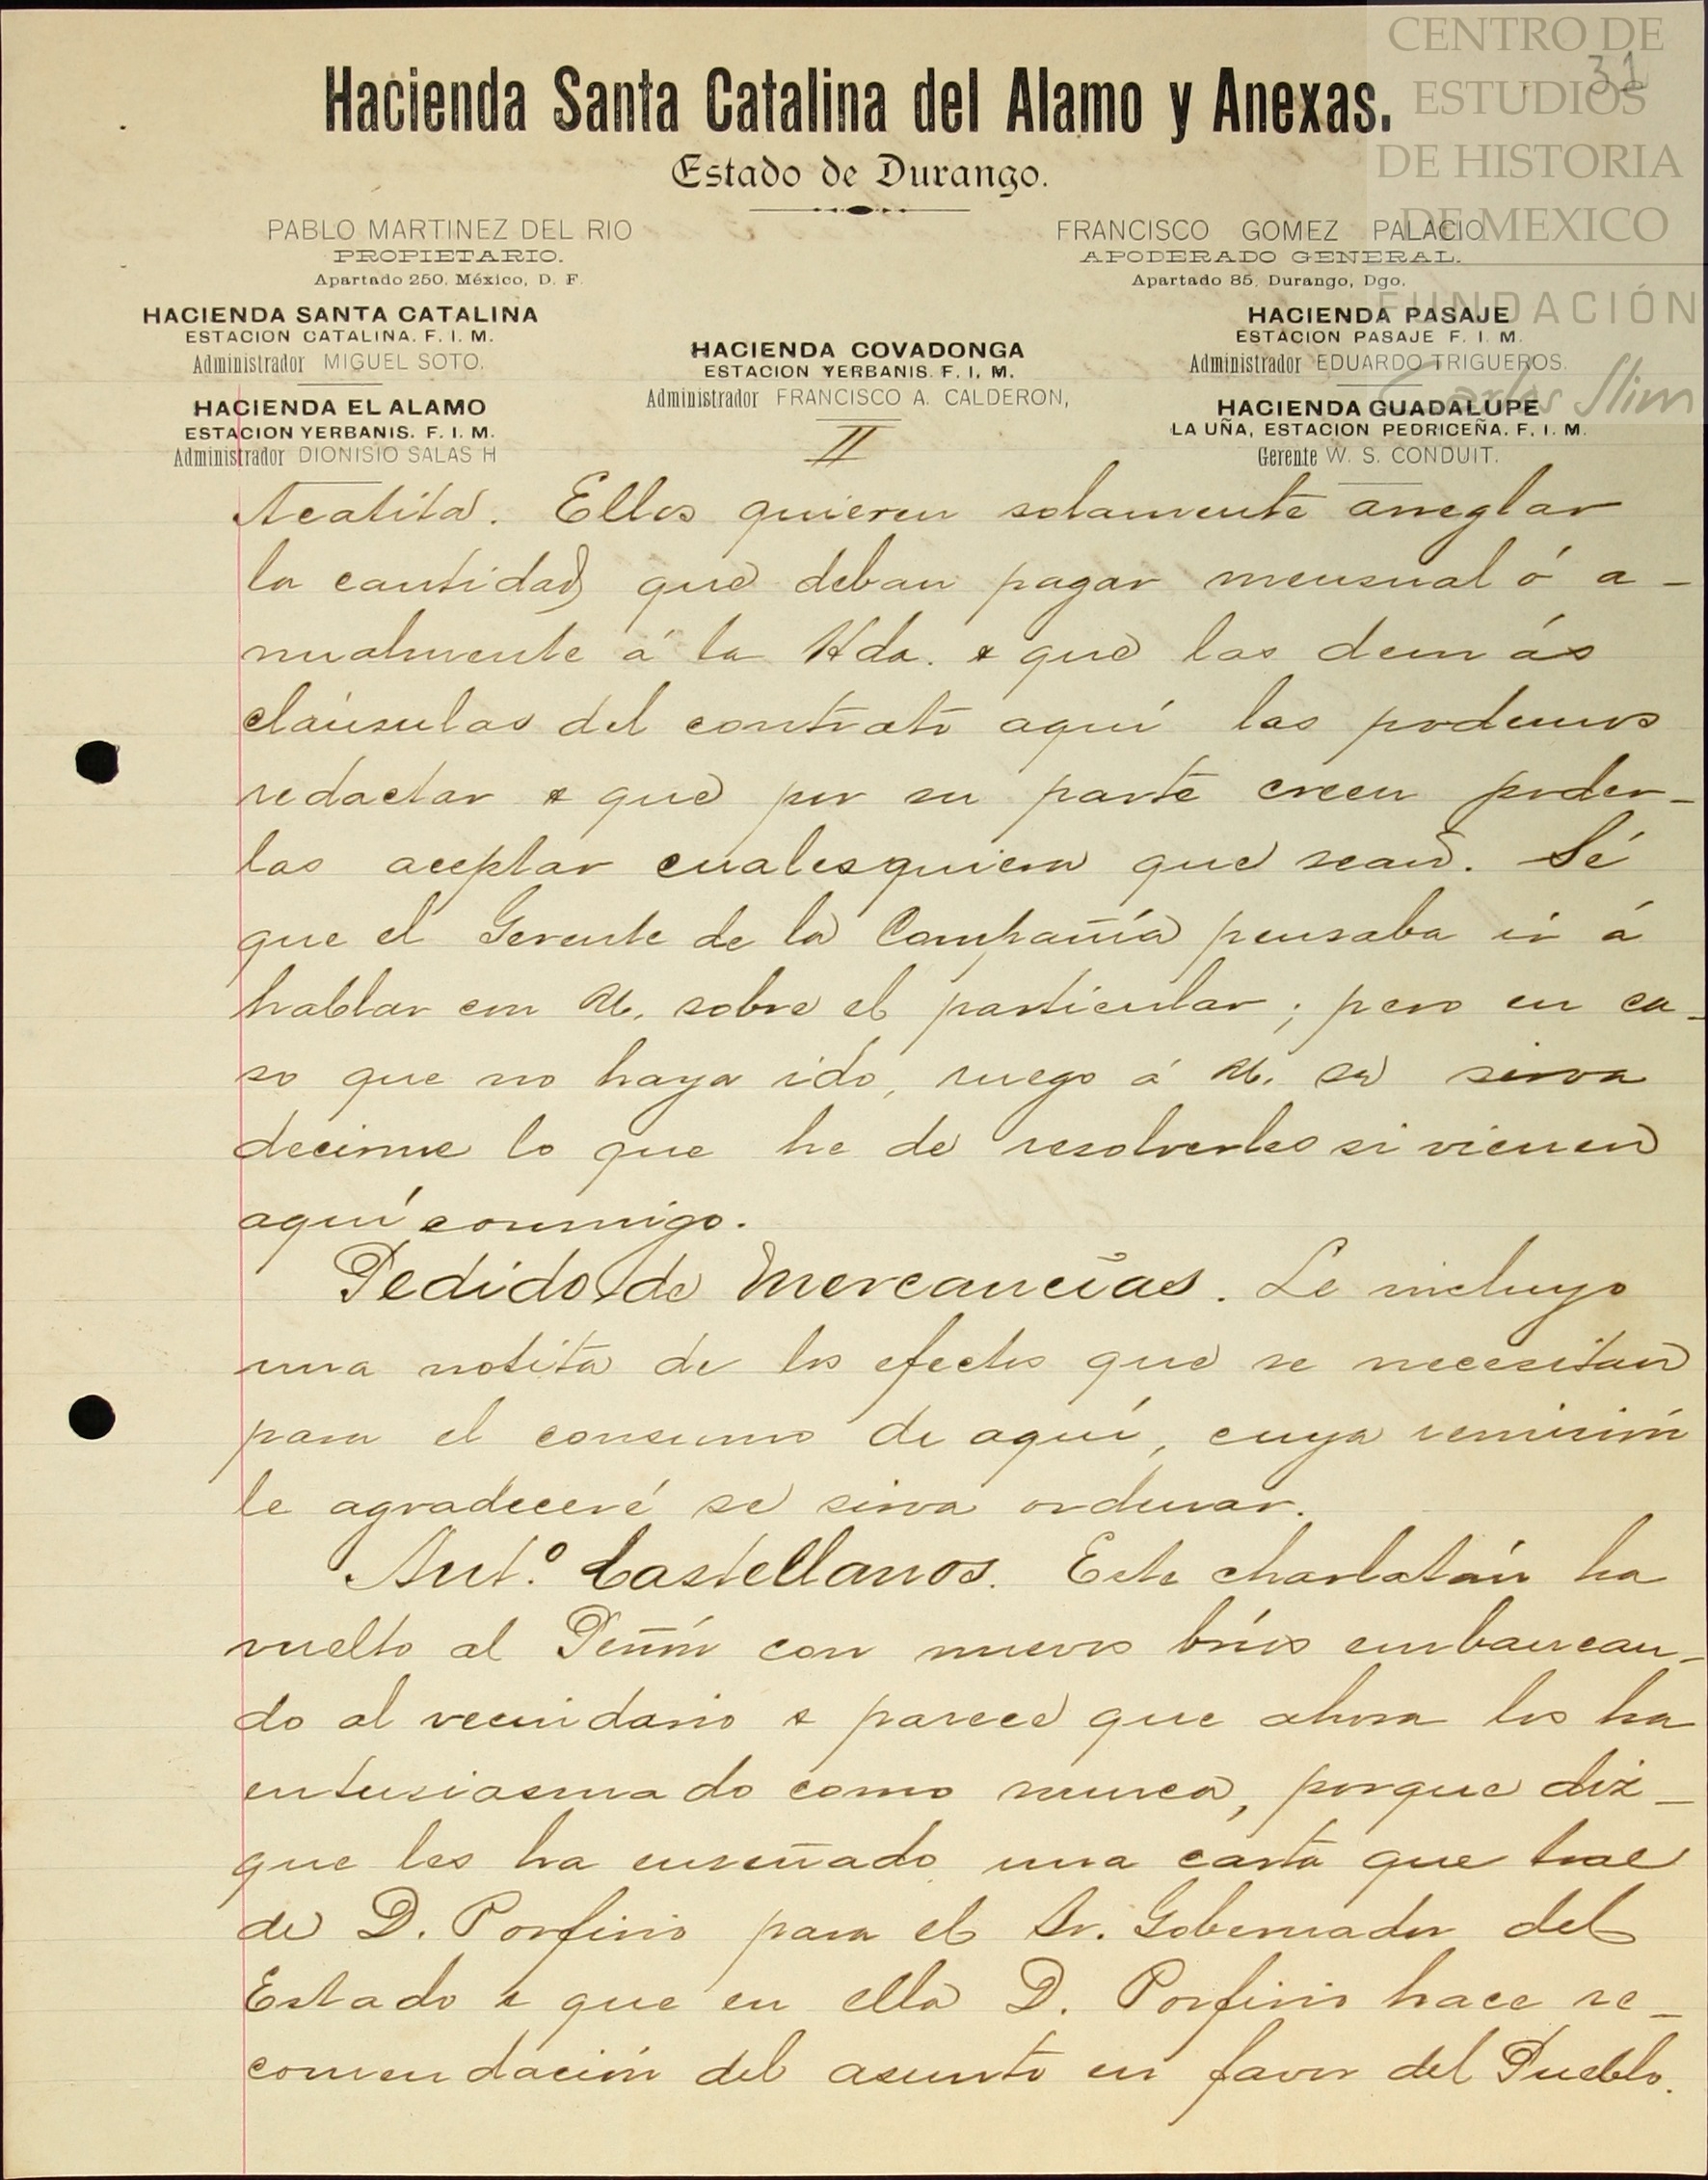 CENTRO DE
ESTUDIOS
DE HISTORIA
DE MEXICO
FUNDACIÓN
Carlos Slim
31
Hacienda Santa Catalina del Alamo y Anexas.
Estado de Durango.
PABLO MARTINEZ DEL RIO
PROPIETARIO.
Apartado 250, México, D. F.
HACIENDA SANTA CATALINA
ESTACION CATALINA. F. I. M.
Administrador MIGUEL SOTO.
HACIENDA EL ALAMO
ESTACION YERBANIS. F. I. M.
Administrador DIONISIO SALAS H
HACIENDA COVADONGA
ESTACION YERBANIS. F. I. M.
Administrador FRANCISCO A. CALDERON,
FRANCISCO GOMEZ PALACIO
APODERADO GENERAL.
Apartado 85, Durango, Dgo.
HACIENDA PASAJE
ESTACION PASAJE F. I. M.
Administrador EDUARDO TRIGUEROS.
HACIENDA GUADALUPE
LA UÑA, ESTACION PEDRICEÑA. F. I. M.
Gerente W. S. CONDUIT.
II
Acatita. Ellos quieren solamente arreglar
la cantidad que deban pagar mensual ó a-
nualmente á la Hda. & que las demás
cláusulas del contrato aquí las podemos
redactar & que por su parte creen poder-
las aceptar cualesquiera que sean. Sé
que el Gerente de la Compañía pensaba ir á
hablar con U. sobre el particular; pero en ca-
so que no haya ido, ruego á U. se sirva
decirme lo que he de resolverles si vienen
aquí conmigo.
Pedido de Mercancías. Le incluyo
una notita de los efectos que se necesitan
para el consumo de aquí, cuya remisión
le agradeceré se sirva ordenar.
Ant.º Castellanos. Este charlatán ha
vuelto al Peñón con nuevos bríos embaucan-
do al vecindario & parece que ahora los ha
entusiasmado como nunca, porque diz-
que les ha enseñado una carta que trae
de D. Porfirio para el Sr. Gobernador del
Estado & que en ella D. Porfirio hace re-
comendación del asunto en favor del Pueblo.